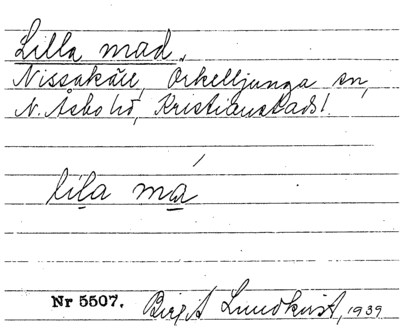 Lilla mad.
Nissakäll, Örkelljunga sn,
N. Åsbo hd, Kristianstads l.
lila ma
Nr 5507. Birgit Lundkvist, 1939